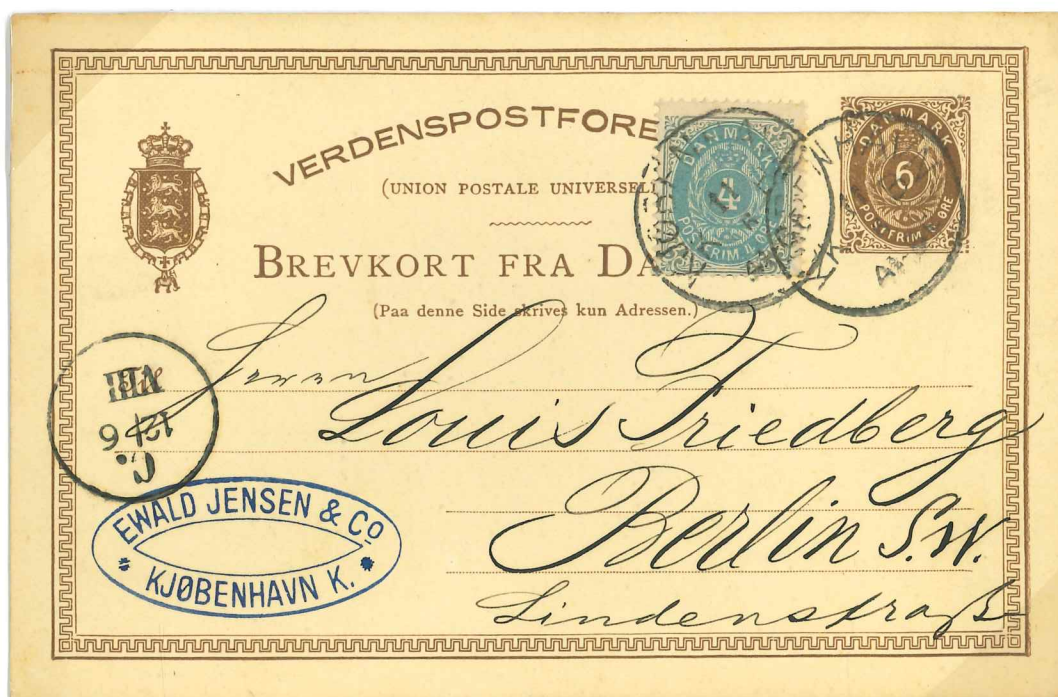 VERDENSPOSTFORE
(UNION POSTALE UNIVERSEL
BREVKORT FRA DA
(Paa denne Side skrives kun Adressen.)
DANMARK
4
POSTFRIM ØRE
DANMARK
6
POSTFRIM ØRE
Herrn
Louis Friedberg
Berlin S.W.
Lindenstraße
VIII
12/6
C.
EWALD JENSEN & Co
KJØBENHAVN K.